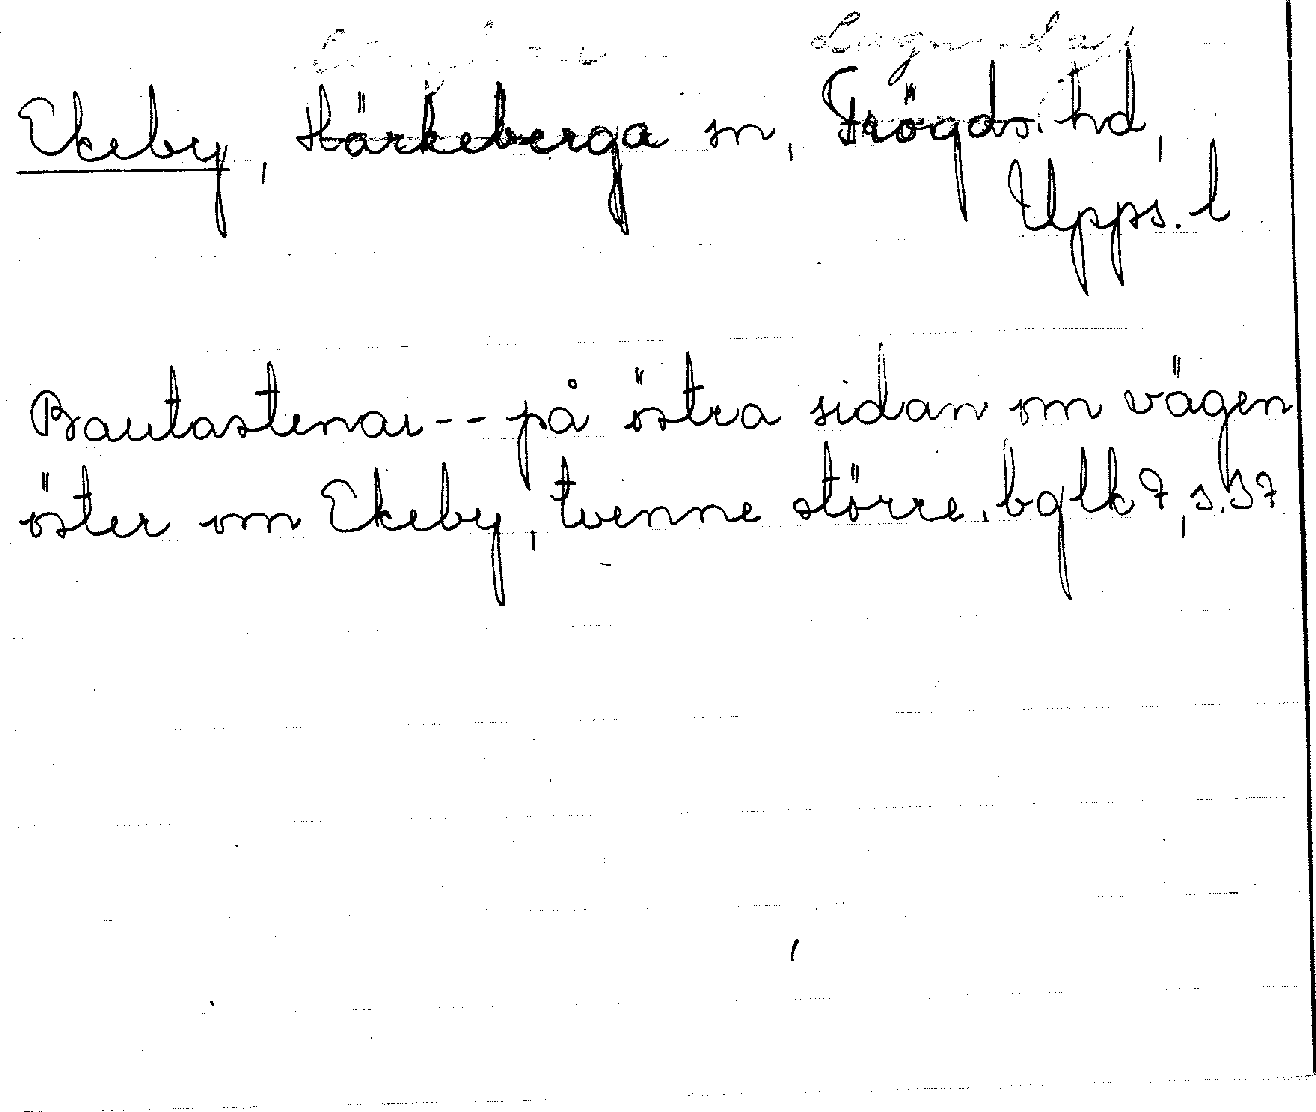 Lagunda
Ekeby, Härkeberga sn, Trögds. hd,
Upps. l
Bautastenar -- på östra sidan om vägen
öster om Ekeby, tvenne större. bglk 7, s. 37